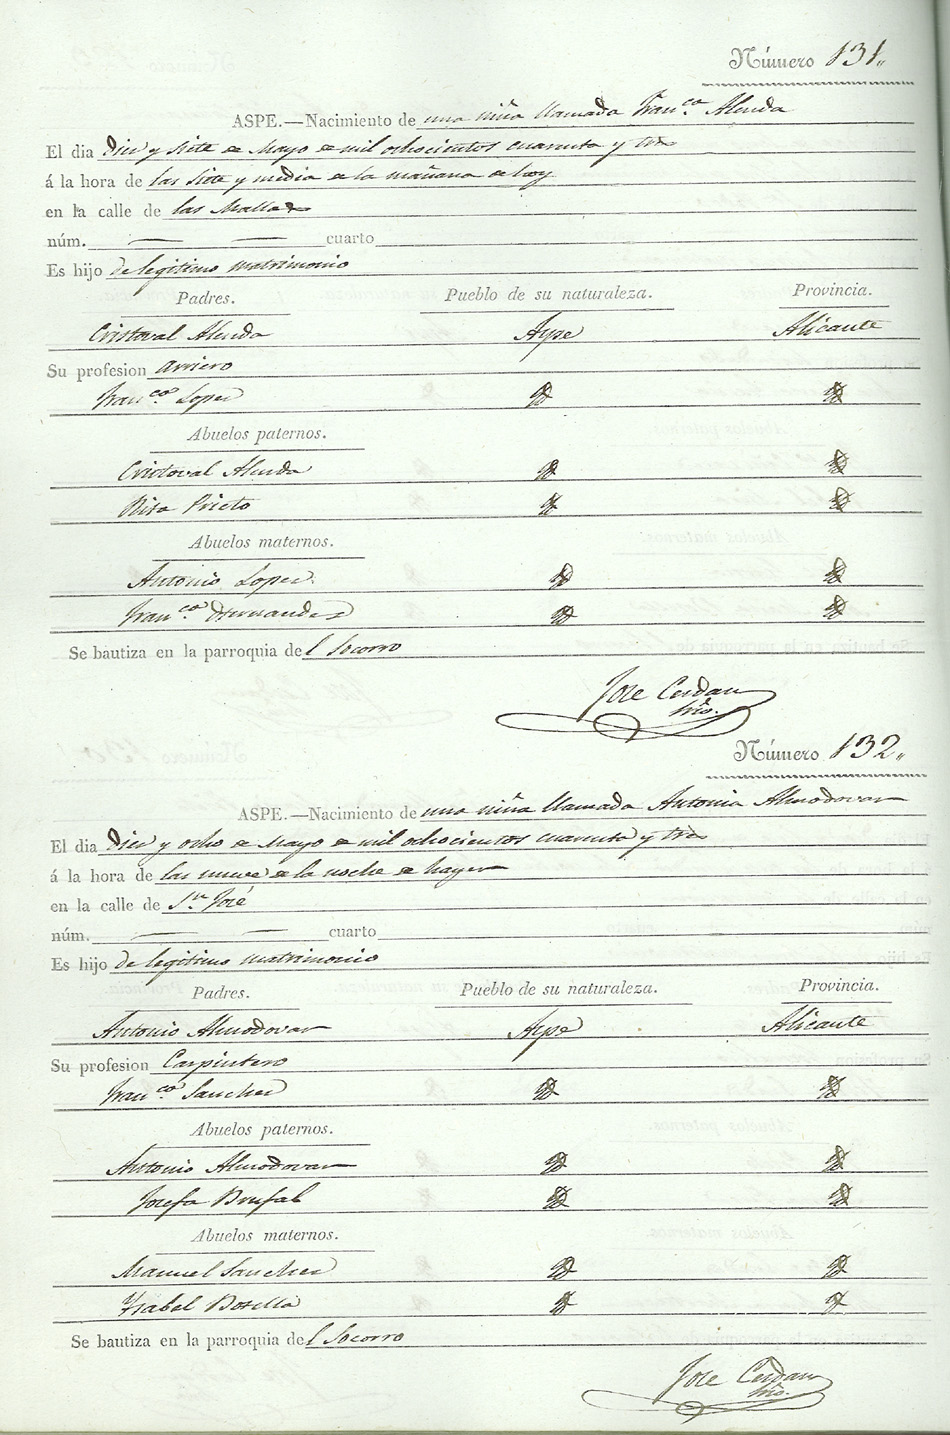 Número 131.
ASPE.—Nacimiento de una niña llamada Fran.ca Alenda
El dia Diez y siete de Mayo de mil ochocientos cuarenta y tres
á la hora de las siete y media de la mañana de hoy
en la calle de las Mallas
núm. — — cuarto
Es hijo de legitimo matrimonio
Padres. Pueblo de su naturaleza. Provincia.
Cristoval Alenda Aspe Alicante
Su profesion Arriero
Fran.ca Lopez
Abuelos paternos.
Cristoval Alenda
Rita Prieto
Abuelos maternos.
Antonio Lopez.
Fran.ca Hernandez
Se bautiza en la parroquia del Socorro
Jose Cerdan
Srio.
Número 132.
ASPE.—Nacimiento de una niña llamada Antonia Almodovar
El dia Diez y ocho de Mayo de mil ochocientos cuarenta y tres
á la hora de las nueve de la noche de hayer
en la calle de Sn. José
núm. — — cuarto
Es hijo de legitimo matrimonio
Padres. Pueblo de su naturaleza. Provincia.
Antonio Almodovar Aspe Alicante
Su profesion Carpintero
Fran.ca Sanchez
Abuelos paternos.
Antonio Almodovar
Josefa Brufal
Abuelos maternos.
Manuel Sanchez
Ysabel Botella
Se bautiza en la parroquia del Socorro
Jose Cerdan
Srio.